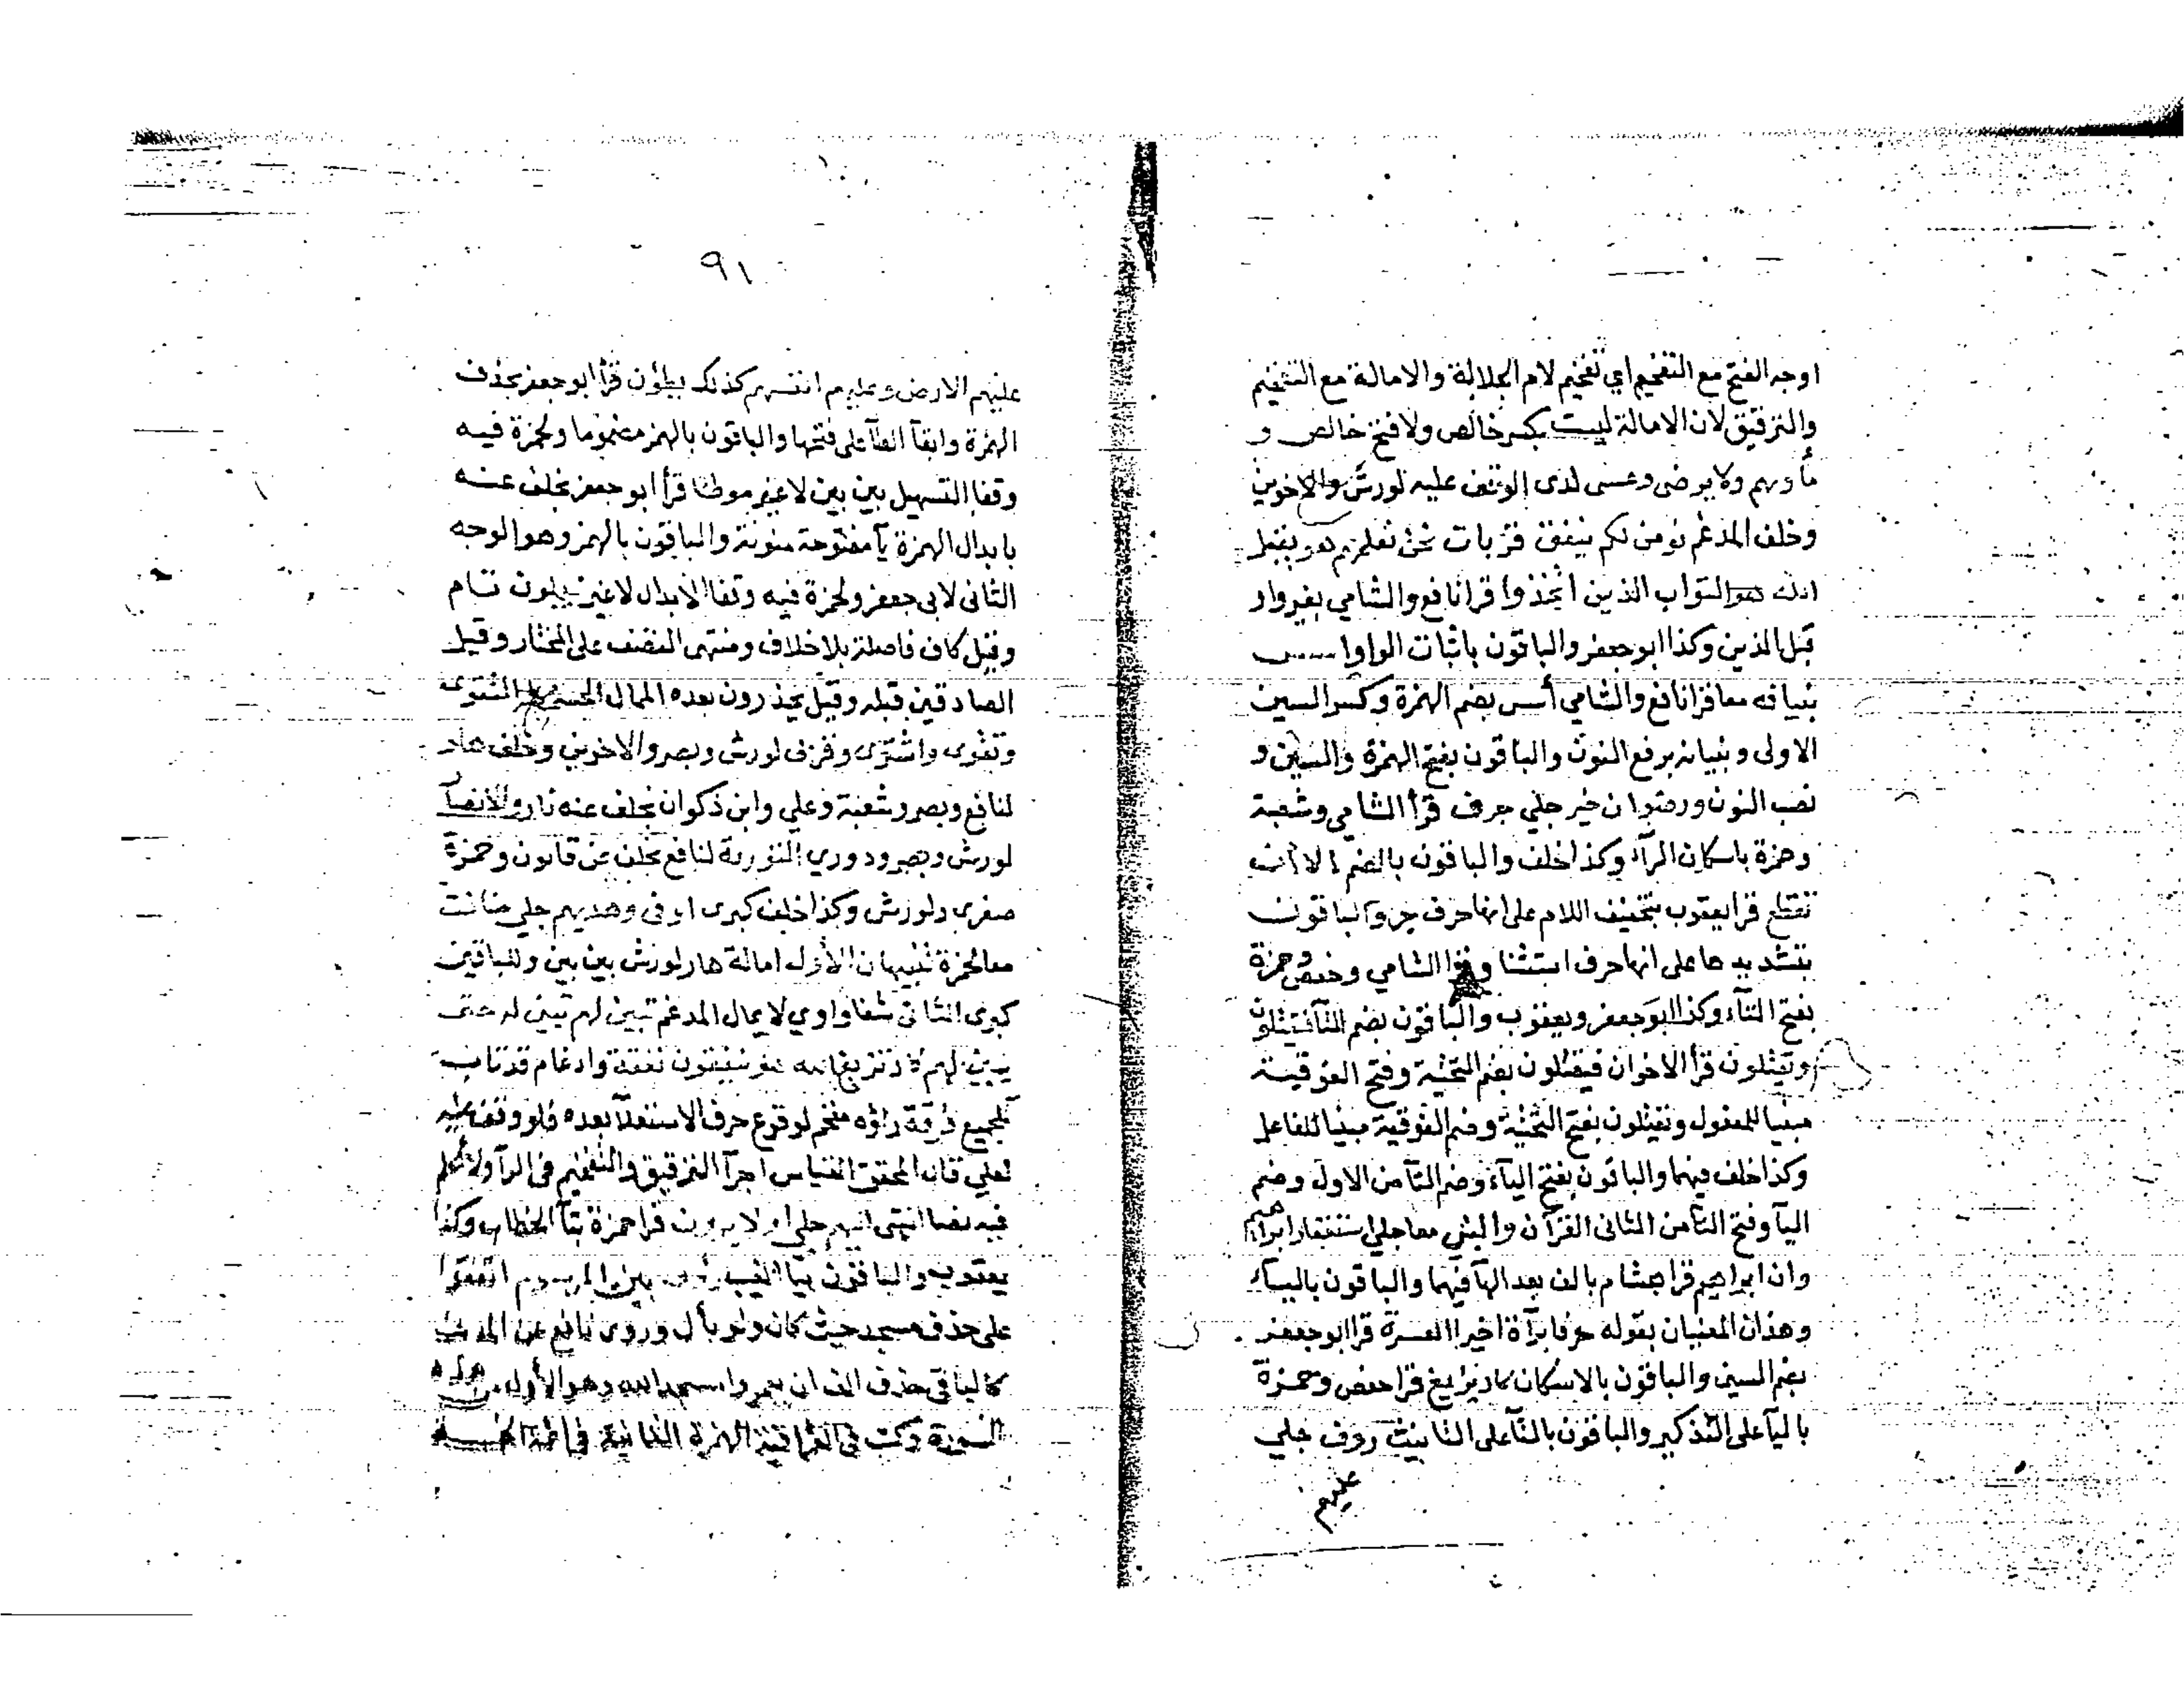 اوجه الفتح مع التفخيم اي تفخيم لام الجلالة والامالة مع التفخيم
والترقيق لان الامالة ليست بكسر خالص ولا فتح خالص و
مأويهم ولا يرضى وعسى لدى الوقف عليه لورش والاخوين
وخلف المدغم نؤمن لكم ينفق قربات نحن نعلمهم هو يقبل
الله هو التواب الذين اتخذوا قرا نافع والشامي بغير واو
قبل الذين وكذا ابو جعفر والباقون باثبات الواو اسس
بنيانه معا قرا نافع والشامي أسس بضم الهمزة وكسر السين
الاولى وبنيانه برفع النون والباقون بفتح الهمزة والسين و
نصب النون ورضوان خير جلي جرف قرأ الشامي وشعبة
وحمزة باسكان الرآء وكذا خلف والباقون بالضم الا أن
تقطع قرا يعقوب بتخفيف اللام على انها حرف جر والباقون
بتشديدها على انها حرف استثنا وقرا الشامي وحفص وحمزة
بفتح التآء وكذا ابو جعفر ويعقوب والباقون بضم التآ فيقتلون
ويقتلون قرأ الاخوان فيقتلون بضم التحتية وفتح الفوقية
مبنيا للمفعول ويقتلون بفتح التحتية وضم الفوقية مبنيا للفاعل
وكذا خلف فيهما والباقون بفتح اليآء وضم التآ من الاول وضم
اليآ وفتح التآ من الثاني القرآن والنبي معا جلي استغفار ابراهيم
وان ابراهيم قرا هشام بالف بعد الهآ فيهما والباقون باليآء
وهذان المعنيان بقوله حرفا برآة اخيرا العسرة قرا ابو جعفر
بضم السين والباقون بالاسكان كاد يزيغ قرا حفص وحمزة
باليآ على التذكير والباقون بالتآ على التانيث رؤف جلي
عليهم
٩١
عليهم الارض وعليهم انفسهم كذلك يطؤن قرأ ابو جعفر بحذف
الهمزة وابقآ الطآ على فتحها والباقون بالهمز مضموما ولحمزة فيه
وقفا التسهيل بين بين لا غير موطئا قرأ ابو جعفر بخلف عنه
بابدال الهمزة يآ مفتوحة منونة والباقون بالهمز وهو الوجه
الثاني لابي جعفر ولحمزة فيه وقفا الابدال لا غير يعملون تام
وقيل كاف فاصلة بلا خلاف ومنتهى النصف على المختار وقيل
الصادقين قبله وقيل يحذرون بعده الممال الحسنى التقوى
وتقوى واشترى وقربى لورش وبصر والاخوين وخلف هار
لنافع وبصر وشعبة وعلي وابن ذكوان بخلف عنه نار والانصار
لورش وبصر ودوري التورية لنافع بخلف عن قالون وحمزة
صغرى ولورش وكذا خلف كبرى اوفى وهديهم جلي ضاقت
معا لحمزة تنبيهان الاول امالة هار لورش بين بين وللباقين
كبرى الثاني شفا واوي لا يمال المدغم تبين لهم تبين له حتى
يبين لهم كاد تزيغ ينفقون نفقة وادغام قد تاب
للجميع فرقة راؤه مفخم لوقوع حرف الاستعلآ بعده فلو وقف عليه
لعلي قال المحقق القياس اجرآ الترقيق والتفخيم في الرآ ولا أعلم
فيه نصا انتهى اليهم جلي اولا يرون قرا حمزة بتآ الخطاب وكذا
يعقوب والباقون بيآ الغيب رؤف المرسوم اتفقوا
على حذف مسجد حيث كان ولو بأل وروى نافع عن المدني
كالباقي حذف الف ان يعمروا مسجد الله وهو الأول من هذه
السورة وكتب في العراقية الهمزة الثانية في ائمة الخمسة